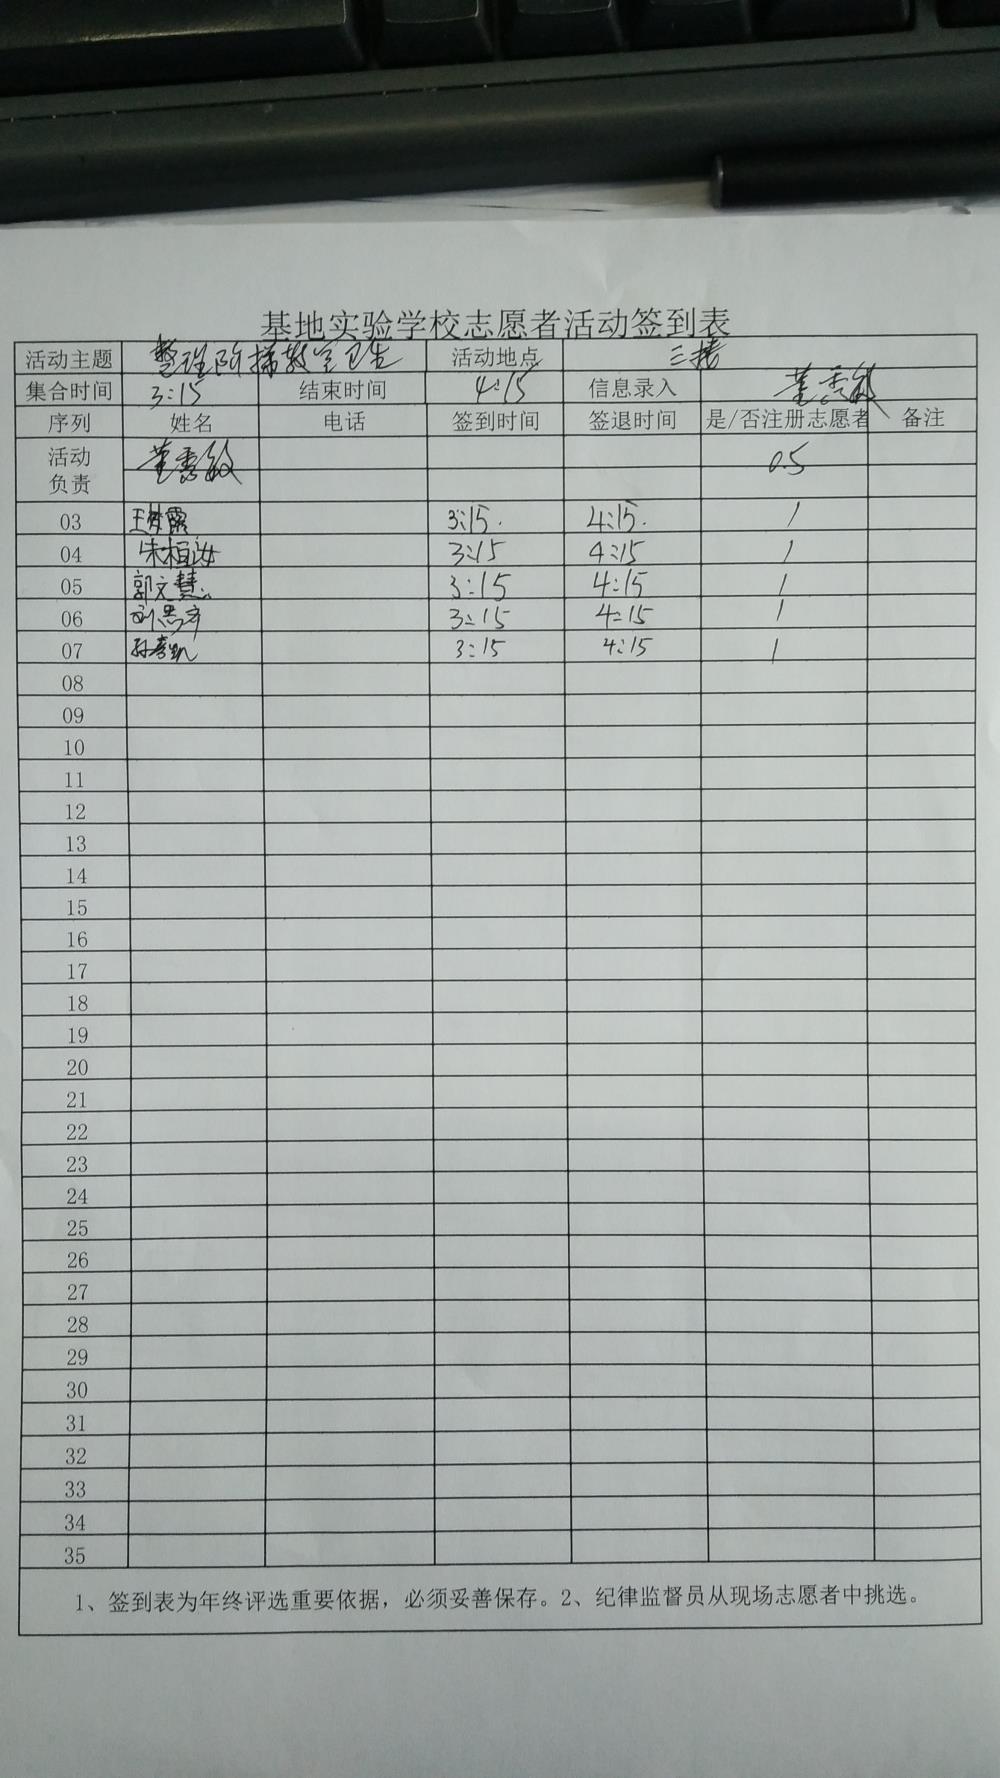 基地实验学校志愿者活动签到表
活动主题 整理阶梯教室卫生 活动地点 三楼
集合时间 3:15 结束时间 4:15 信息录入 董秀敏
序列 姓名 电话 签到时间 签退时间 是/否注册志愿者 备注
活动
负责 董秀敏 0.5
03 王梦露 3:15 4:15
1
04 朱相汝 3:15 4:15 1
05 郭文慧 3:15 4:15 1
06 3:15 4:15 1
07 3:15 4:15 1
08
09
10
11
12
13
14
15
16
17
18
19
20
21
22
23
24
25
26
27
28
29
30
31
32
33
34
35
1、签到表为年终评选重要依据，必须妥善保存。2、纪律监督员从现场志愿者中挑选。